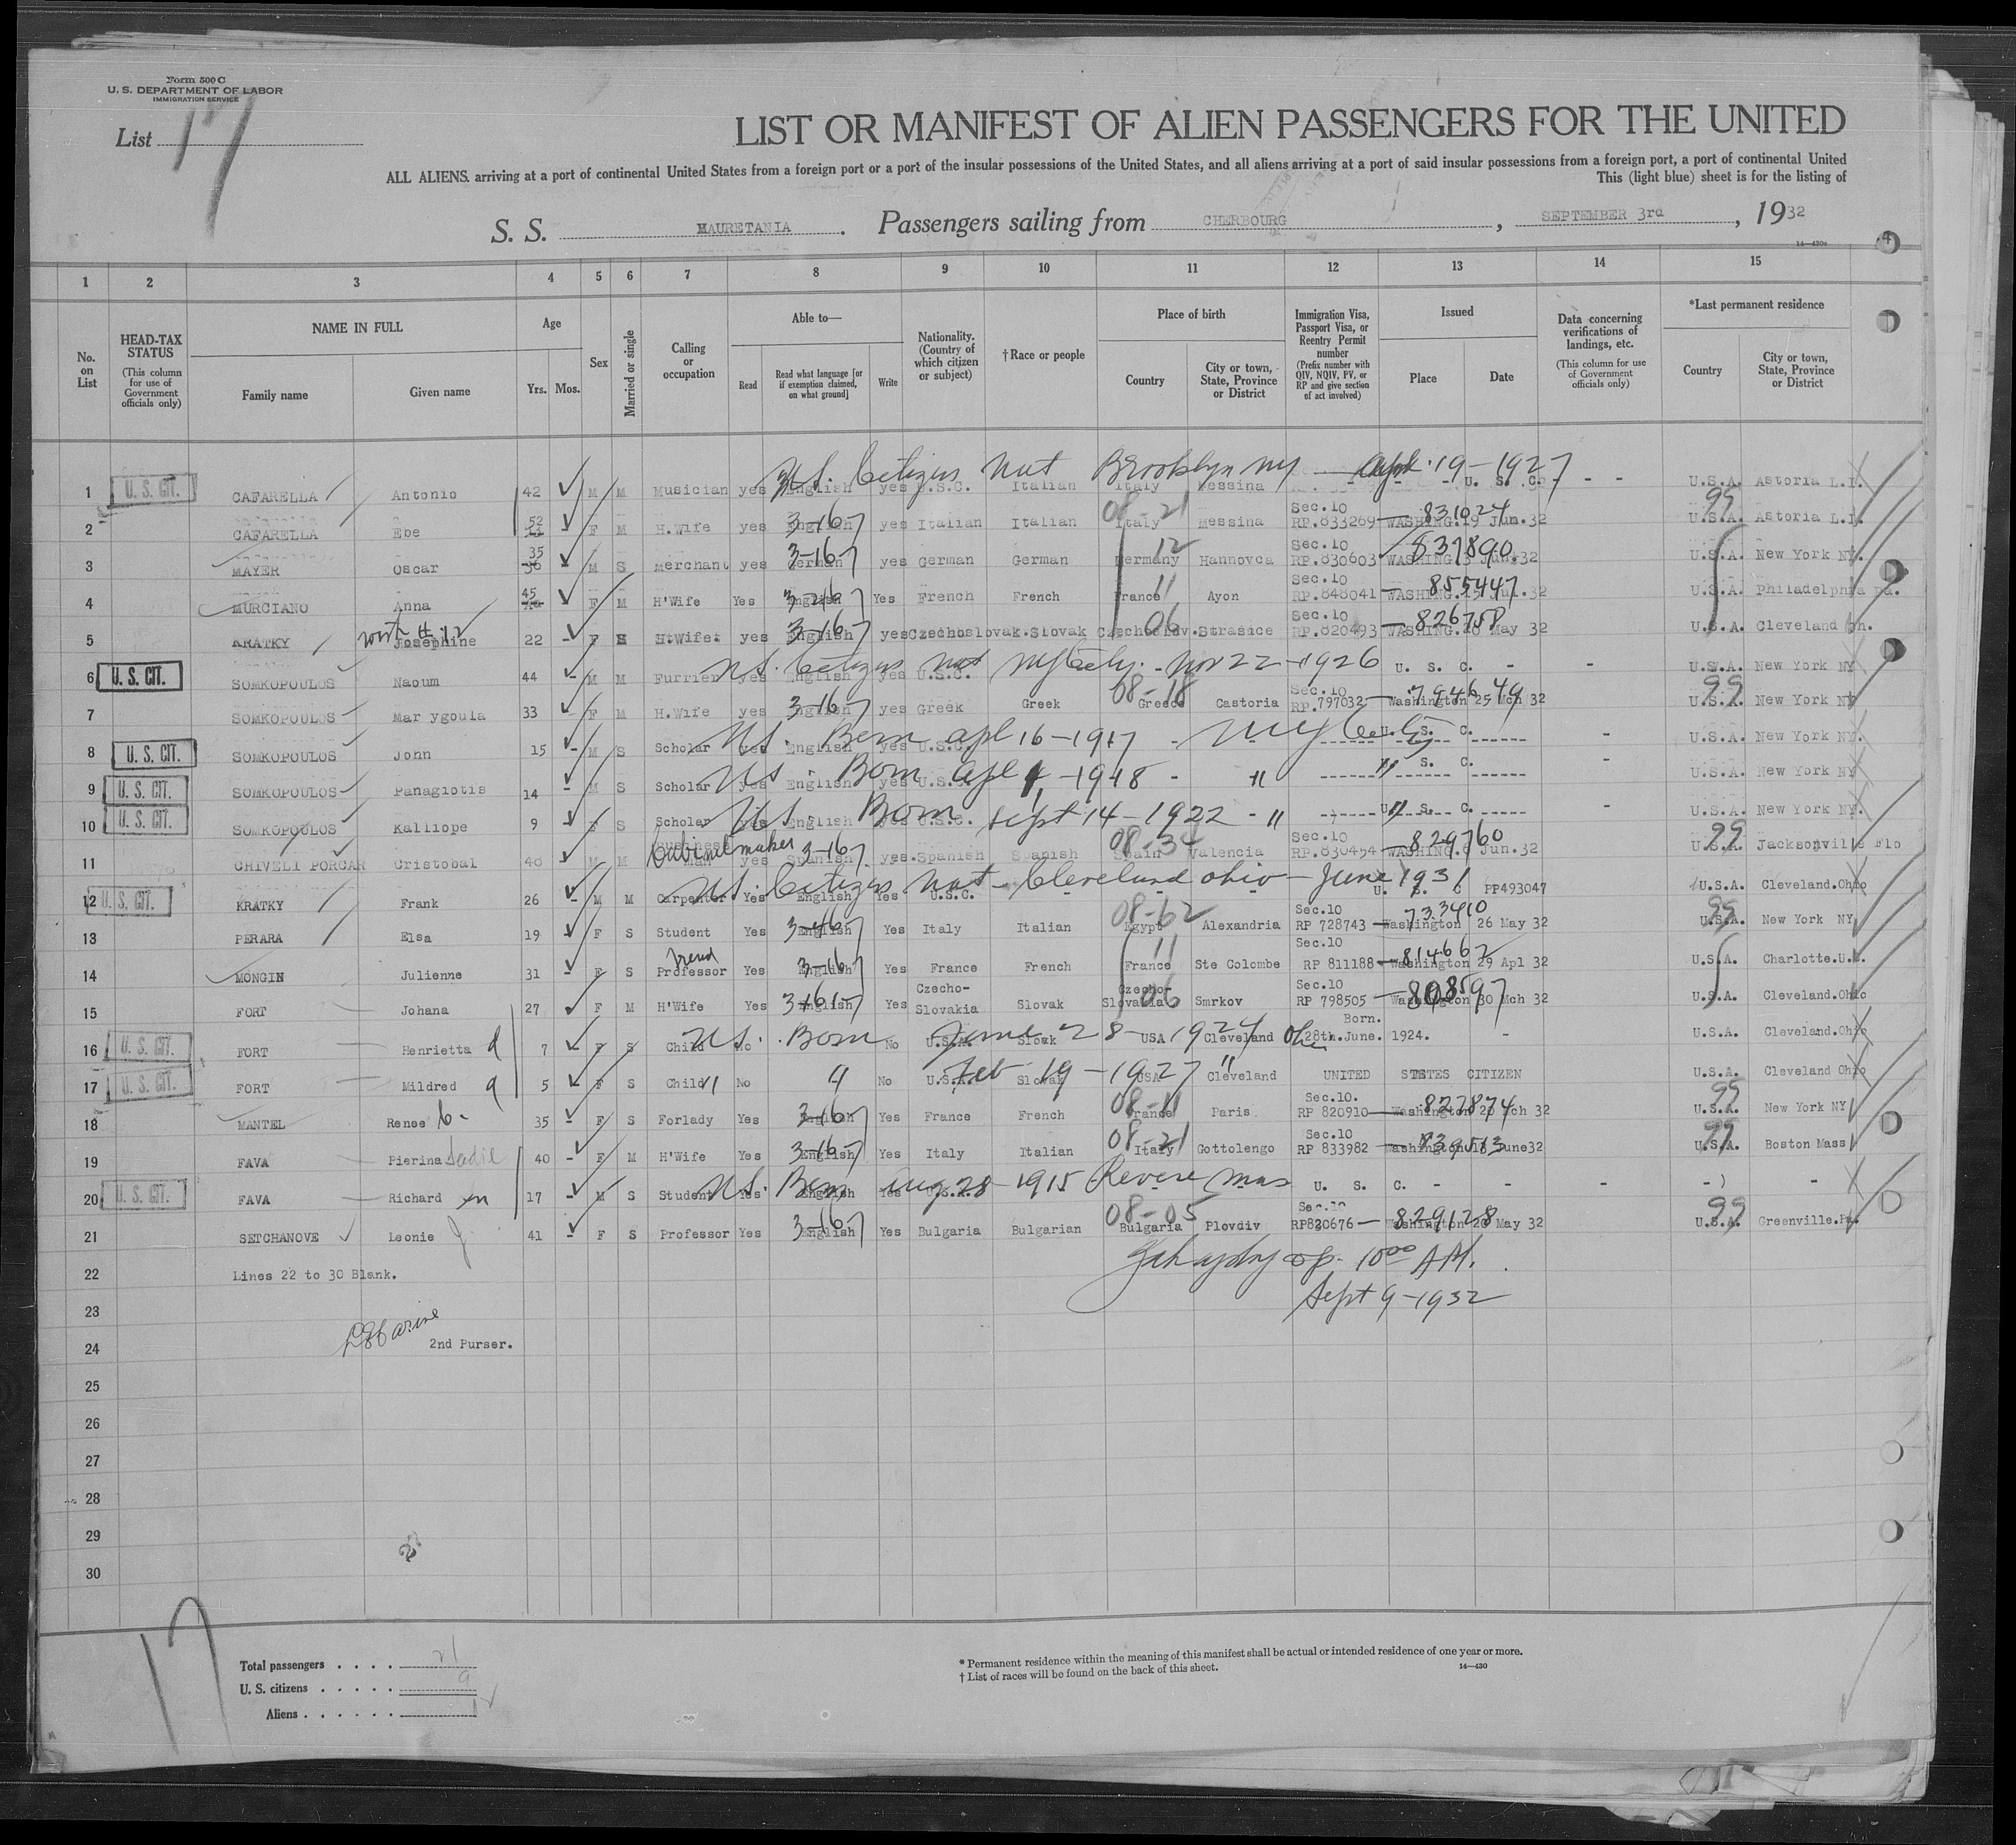 Form 500 C
U. S. DEPARTMENT OF LABOR
IMMIGRATION SERVICE
List 17
LIST OR MANIFEST OF ALIEN PASSENGERS FOR THE UNITED
ALL ALIENS. arriving at a port of continental United States from a foreign port or a port of the insular possessions of the United States, and all aliens arriving at a port of said insular possessions from a foreign port, a port of continental United
This (light blue) sheet is for the listing of
S. S. MAURETANIA. Passengers sailing from CHERBOURG, SEPTEMBER 3rd, 1932
14—430c
1 2 3 4 5 6 7 8 9 10 11 12 13 14 15
No. on List
HEAD-TAX STATUS (This column for use of Government officials only)
NAME IN FULL Family name Given name
Age Yrs. Mos.
Sex
Married or single
Calling or occupation
Able to— Read Read what language [or if exemption claimed, on what ground] Write
Nationality. (Country of which citizen or subject)
†Race or people
Place of birth Country City or town, State, Province or District
Immigration Visa, Passport Visa, or Reentry Permit number (Prefix number with QIV, NQIV, PV, or RP and give section of act involved)
Issued Place Date
Data concerning verifications of landings, etc. (This column for use of Government officials only)
*Last permanent residence Country City or town, State, Province or District
U.S. Citizen Nat Brooklyn NY 19-1927
1 U. S. CIT. CAFARELLA Antonio 42 M M Musician yes English yes U.S.C. Italian Italy Messina - - - U. S. C. - - - U.S.A. Astoria L.I.
52 3-167 08-21 Sec.10 831024 99
2 CAFARELLA Ebe F M H.Wife yes English yes Italian Italian Italy Messina RP.833269 WASHING.19 Jun.32 U.S.A. Astoria L.I.
35 3-167 12 Sec.10 837890
3 MAYER Oscar 36 M S Merchant yes German yes German German Germany Hannovca RP.830603 WASHING. Jun.32 U.S.A. New York NY.
45 3-167 11 Sec.10 855447
4 MURCIANO Anna F M H'Wife Yes English Yes French French France Ayon RP.848041 WASHING. Jul.32 U.S.A. Philadelphia Pa.
with # 12 3-167 06 Sec.10 826758
5 KRATKY Josephine 22 F H.Wife. yes English yes Czechoslovak. Slovak Czechoslov. Strasice RP.820493 WASHING. May 32 U.S.A. Cleveland Oh.
U.S. Citizen Nat NY City. Nov 22-1926
6 U. S. CIT. SOMKOPOULOS Naoum 44 M M Furrier yes English yes U.S.C. U. S. C. - - U.S.A. New York NY
3-167 08-18 Sec.10 794649 99
7 SOMKOPOULOS Marygoula 33 F M H.Wife yes English yes Greek Greek Greece Castoria RP.797032 Washington 25 Mch 32 U.S.A. New York NY
US. Born Apl 16-1917 - NY City
8 U. S. CIT. SOMKOPOULOS John 15 M S Scholar yes English yes U.S.C. U. S. C. ------ - U.S.A. New York NY.
US. Born Apl 1, -1918 - "
9 U. S. CIT. SOMKOPOULOS Panagiotis 14 M S Scholar yes English yes U.S.C. ------ U. S. C. ------ - U.S.A. New York NY
US. Born Sept 14-1922 - "
10 U. S. CIT. SOMKOPOULOS Kalliope 9 F S Scholar yes English yes U.S.C. ------ U. S. C. ----- - U.S.A. New York NY.
Cabinetmaker 3-167 08-34 Sec.10 829760 99
11 CHIVELI PORCAR Cristobal 48 M M yes Spanish yes. Spanish Spanish Spain Valencia RP.830454 WASHING.6 Jun.32 U.S.A. Jacksonville Flo
US. Citizen Nat - Cleveland Ohio - June 1931
12 U. S. CIT. KRATKY Frank 26 M M Carpenter Yes English Yes U.S.C. - - - U. S. C PP493047 U.S.A. Cleveland.Ohio
3-167 08-62 Sec.10 733410 99
13 PERARA Elsa 19 F S Student Yes English Yes Italy Italian Egypt Alexandria RP 728743 Washington 26 May 32 U.S.A. New York NY
3-167 11 Sec.10 814662
14 MONGIN Julienne 31 F S Professor Yes English Yes France French France Ste Colombe RP 811188 Washington 29 Apl 32 U.S.A. Charlotte.
3-167 Czecho- Czecho- 06 Sec.10 808597
15 FORT Johana 27 F M H'Wife Yes English Yes Slovakia Slovak Slovakia Smrkov RP 798505 Washington 30 Mch 32 U.S.A. Cleveland.Ohio
US. Born June 28-1924 Ohio Born.
16 U. S. CIT. FORT Henrietta 7 F S Child No No U.S.A. Slovak USA Cleveland 28th.June. 1924. - U.S.A. Cleveland.Ohio
" " Feb 19-1927 "
17 U. S. CIT. FORT Mildred 5 F S Child No No U.S.A. Slovak USA Cleveland UNITED STATES CITIZEN U.S.A. Cleveland Ohio
3-167 08-11 Sec.10. 827874 99
18 MANTEL Renee 35 F S Forlady Yes English Yes France French France Paris RP 820910 Washington 20 Mch 32 U.S.A. New York NY
3-167 08-21 Sec.10 839513 99
19 FAVA Pierina 40 F M H'Wife Yes English Yes Italy Italian Italy Gottolengo RP 833982 Washington June32 U.S.A. Boston Mass
US. Born Aug 28-1915 Revere Mass
20 U. S. CIT. FAVA Richard 17 M S Student Yes English Yes U.S.A. U. S. C. - - - - -
3-167 08-05 Sec.10 829128 99
21 SETCHANOVE Leonie J. 41 F S Professor Yes English Yes Bulgaria Bulgarian Bulgaria Plovdiv RP820676 Washington 20 May 32 U.S.A. Greenville.Pa.
22 Lines 22 to 30 Blank. 10 00 AM.
23 Sept 9-1932
24 2nd Purser.
25
26
27
28
29
30
17
Total passengers . . . . 21
U. S. citizens . . . . . 9
Aliens . . . . . .
* Permanent residence within the meaning of this manifest shall be actual or intended residence of one year or more.
† List of races will be found on the back of this sheet.
14—430